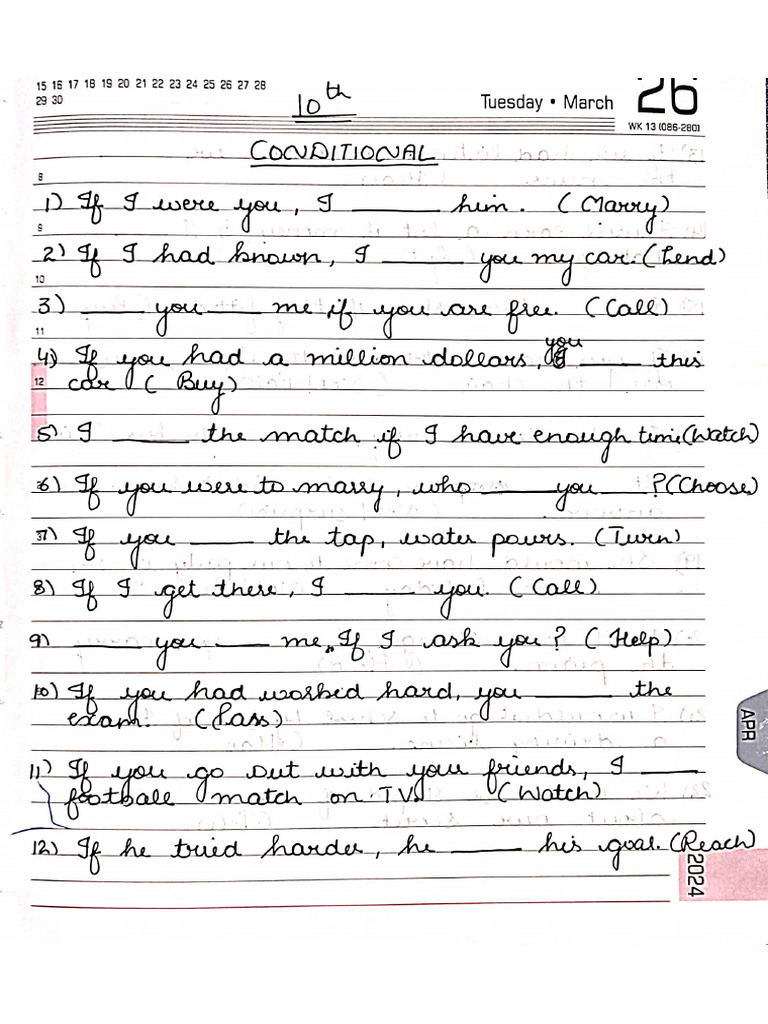 15 16 17 18 19 20 21 22 23 24 25 26 27 28
29 30
10th
Tuesday • March 26
WK 13 (086-280)
CONDITIONAL
8
1) If I were you, I ______ him. (Marry)
9
2) If I had known, I ______ you my car. (Lend)
10
3) ____ you ____ me, if you are free. (Call)
11
4) If you had a million dollars, you ____ this
12
car (Buy)
5) I ____ the match if I have enough time (Watch)
6) If you were to marry, who ____ you ____? (Choose)
7) If you ____ the tap, water pours. (Turn)
8) If I get there, I ____ you. (Call)
9) ____ you ____ me, If I ask you? (Help)
10) If you had worked hard, you ____ the
exam. (Pass)
APR
11) If you go out with your friends, I ____
football match on TV. (Watch)
12) If he tried harder, he ____ his goal. (Reach)
2024